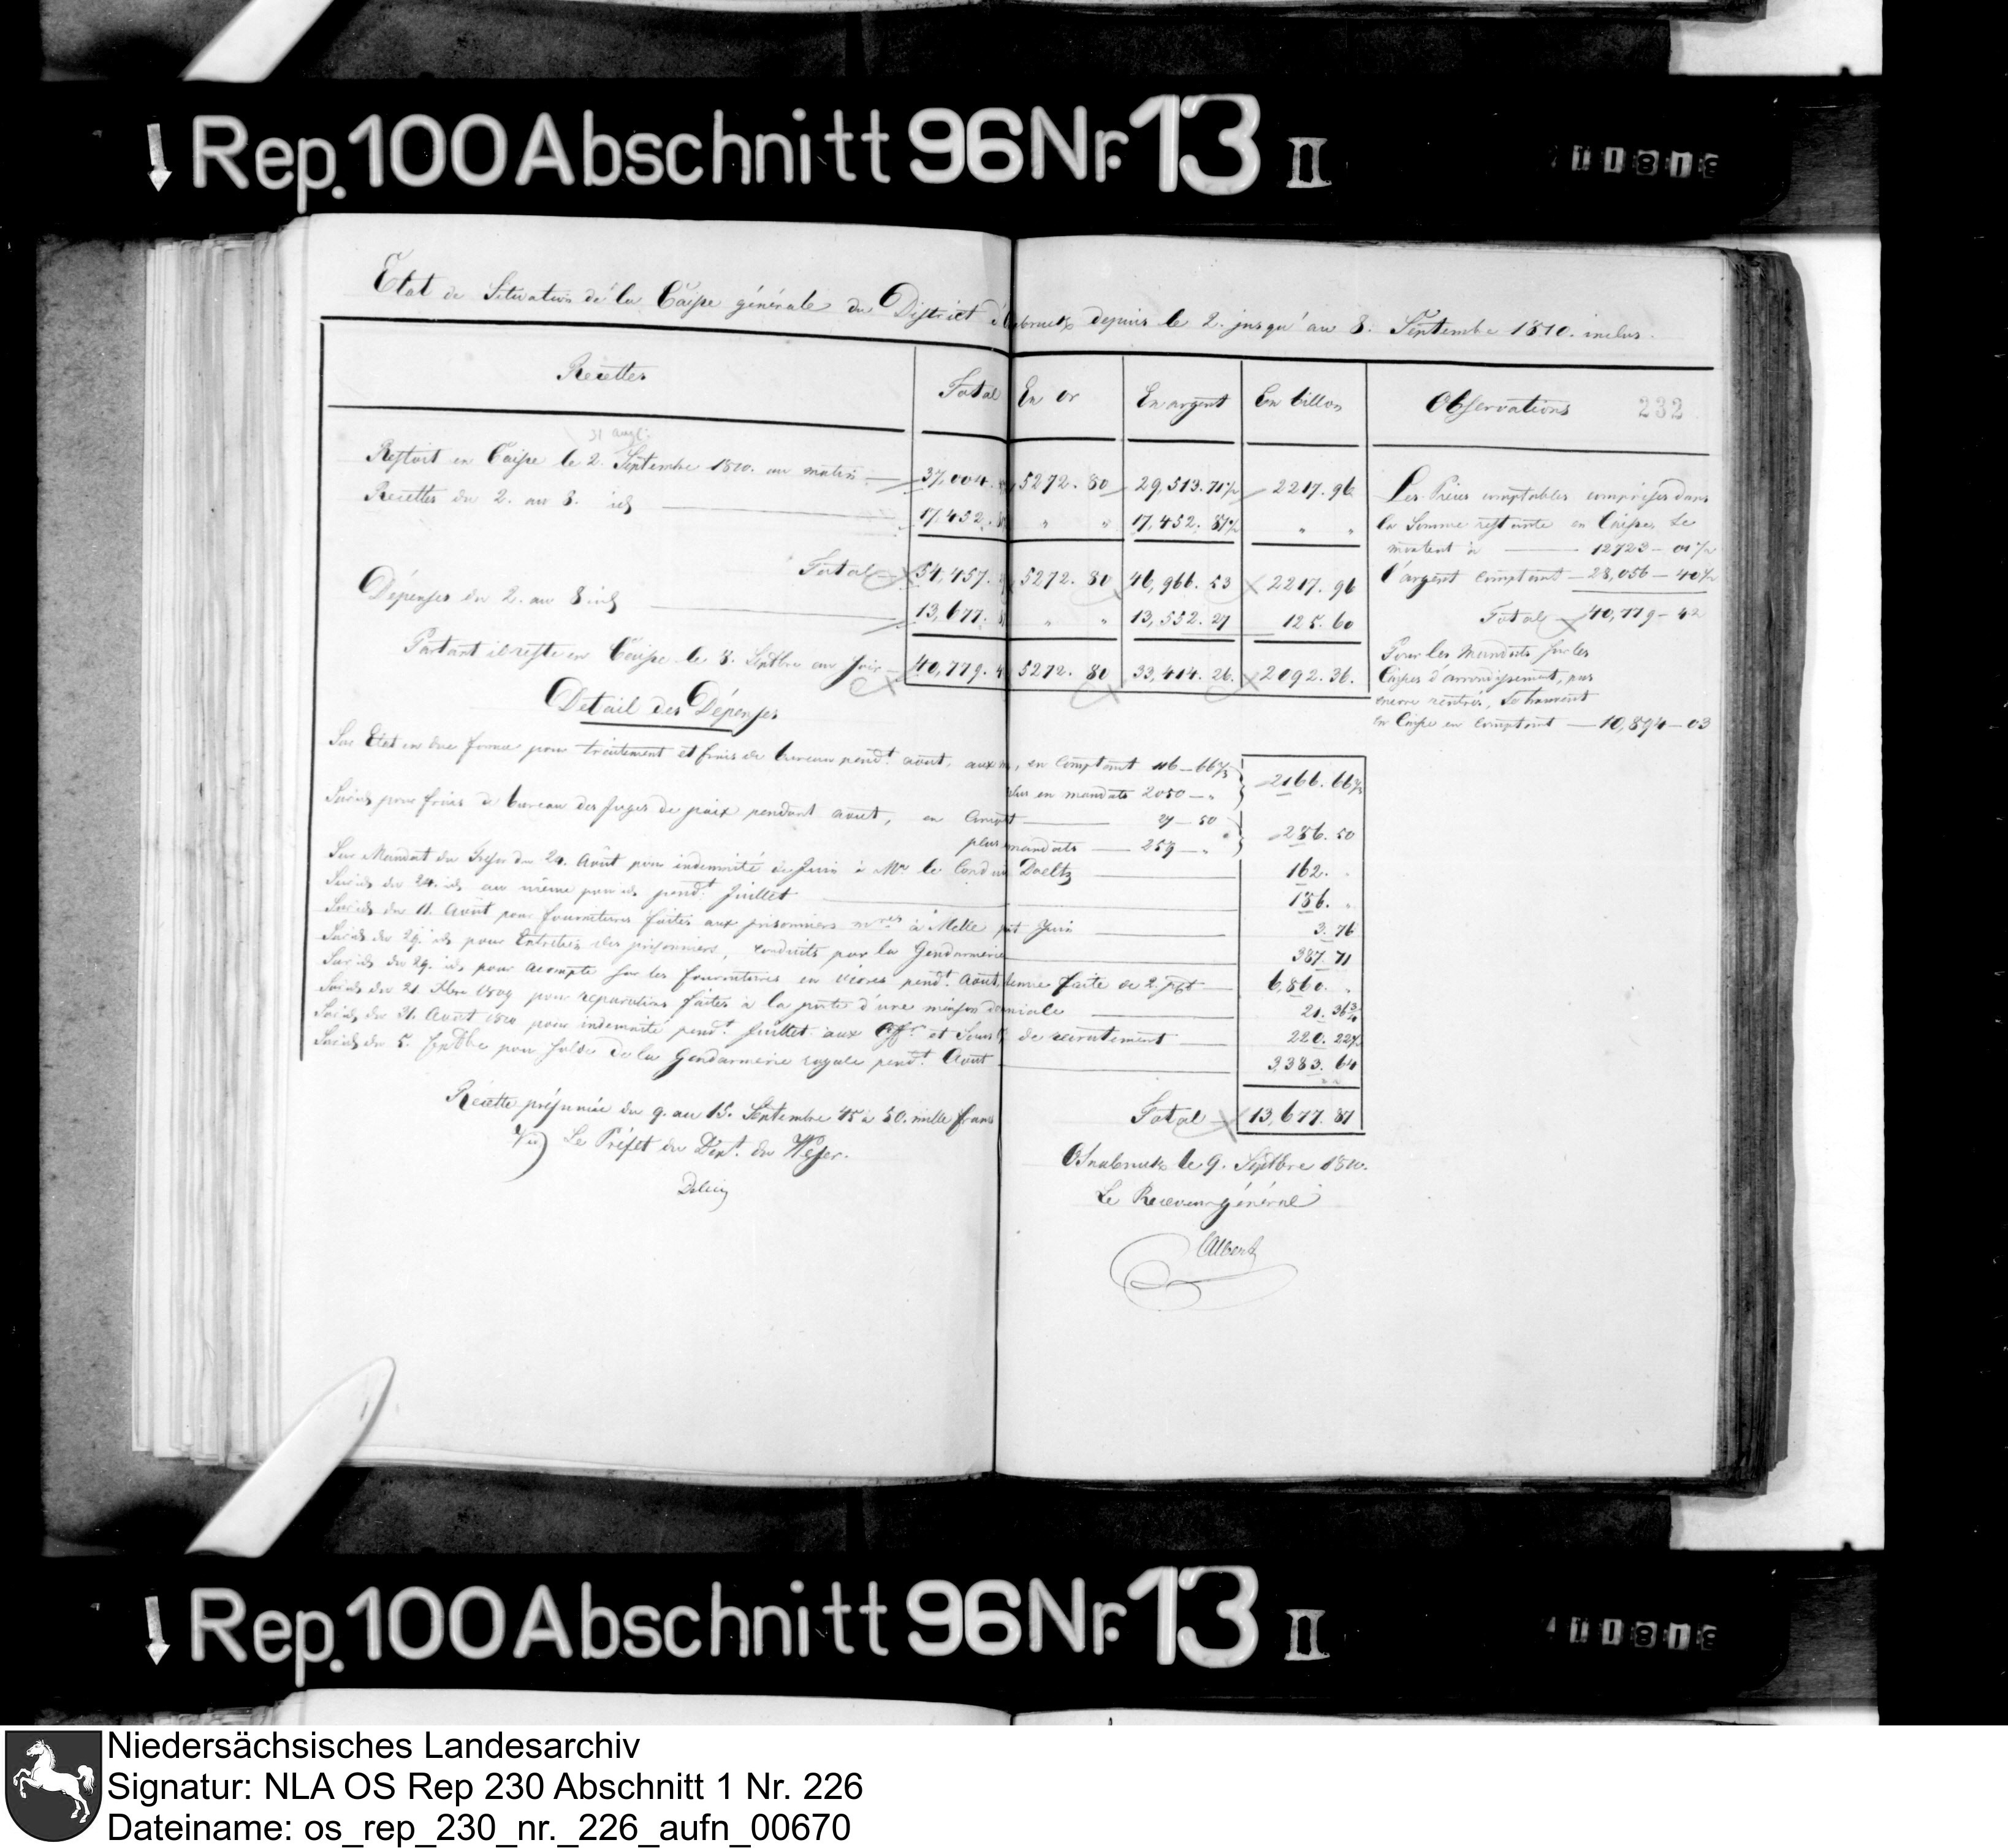 Rep. 100 Abschnitt 96 Nr. 13 II
Etat de Situation de la Caisse générale du District d'Osnabruck depuis le 2. jusqu'au 8. Septembre 1810. inclus.
Recettes Total En or En argent En billon Observations 232
31 aug
Restoit en Caisse le 2. Septembre 1810. au matin 37,004. 5272. 80 29,513. 71½ 2217. 96
Recettes du 2. au 8. id 17,452. " " 17,452. 81½ " "
Total 54,457. 5272. 80 46,966. 53 2217. 96
Dépenses du 2. au 8 id 13,677. " " 13,552. 27 125. 60
Partant il reste en Caisse le 8. Septbre au soir 40,779. 4 5272. 80 33,414. 26. 2092. 36.
Les Pièces comptables comprises dans
la Somme restante en Caisse, se
montent à 12723 - 01½
l'argent comptant 28,056 - 40½
Total 40,779 - 42
Pour les Mandats sur les
Caisses d'arrondissement, pas
encore rentrés, se trouvent
en Caisse en comptant 10,894 - 03
Detail des Dépenses
Sur Etat en due forme pour traitement et frais de bureau pendt. août, aux , en Comptant 116 - 66⅔
plus en mandats 2050 - " 2166. 66⅔
Sur id pour frais de bureau des Juges de paix pendant août, en Compt 27 - 50
plus mandats 259 - " 286. 50
Sur Mandat du Trésor du 24. Août pour indemnité de Juin à Mr le Doeltz 162. "
Sur id du 24. id au même pour id pendt. Juillet 186. "
Sur id du 11. Août pour fournitures faites aux prisonniers mres à Melle pdt Juin 3. 76
Sur id du 29. id pour Entretien des prisonniers, conduits par la Gendarmerie 387. 71
Sur id du 29. id pour acompte sur les fournitures en vivres pendt. Août, faite de 2 6,860. "
Sur id du 21. Xbre 1809 pour réparations faites à la porte d'une maison domaniale 21. 36¾
Sur id du 21. Août 1810 pour indemnité pendt. Juillet aux Offrs et Sous de recrutement 220. 22½
Sur id du 5. Septbre pour solde de la Gendarmerie royale pendt. Août 3,383. 64
Total 13,677. 87
Recette présumée du 9. au 15. Septembre 45 à 50. mille francs
Vu) Le Préfet du Dept. du Weser.
Delius
Osnabruck le 9. Septbre 1810.
Le Receveur général
Rep. 100 Abschnitt 96 Nr. 13 II
Niedersächsisches Landesarchiv
Signatur: NLA OS Rep 230 Abschnitt 1 Nr. 226
Dateiname: os_rep_230_nr._226_aufn_00670